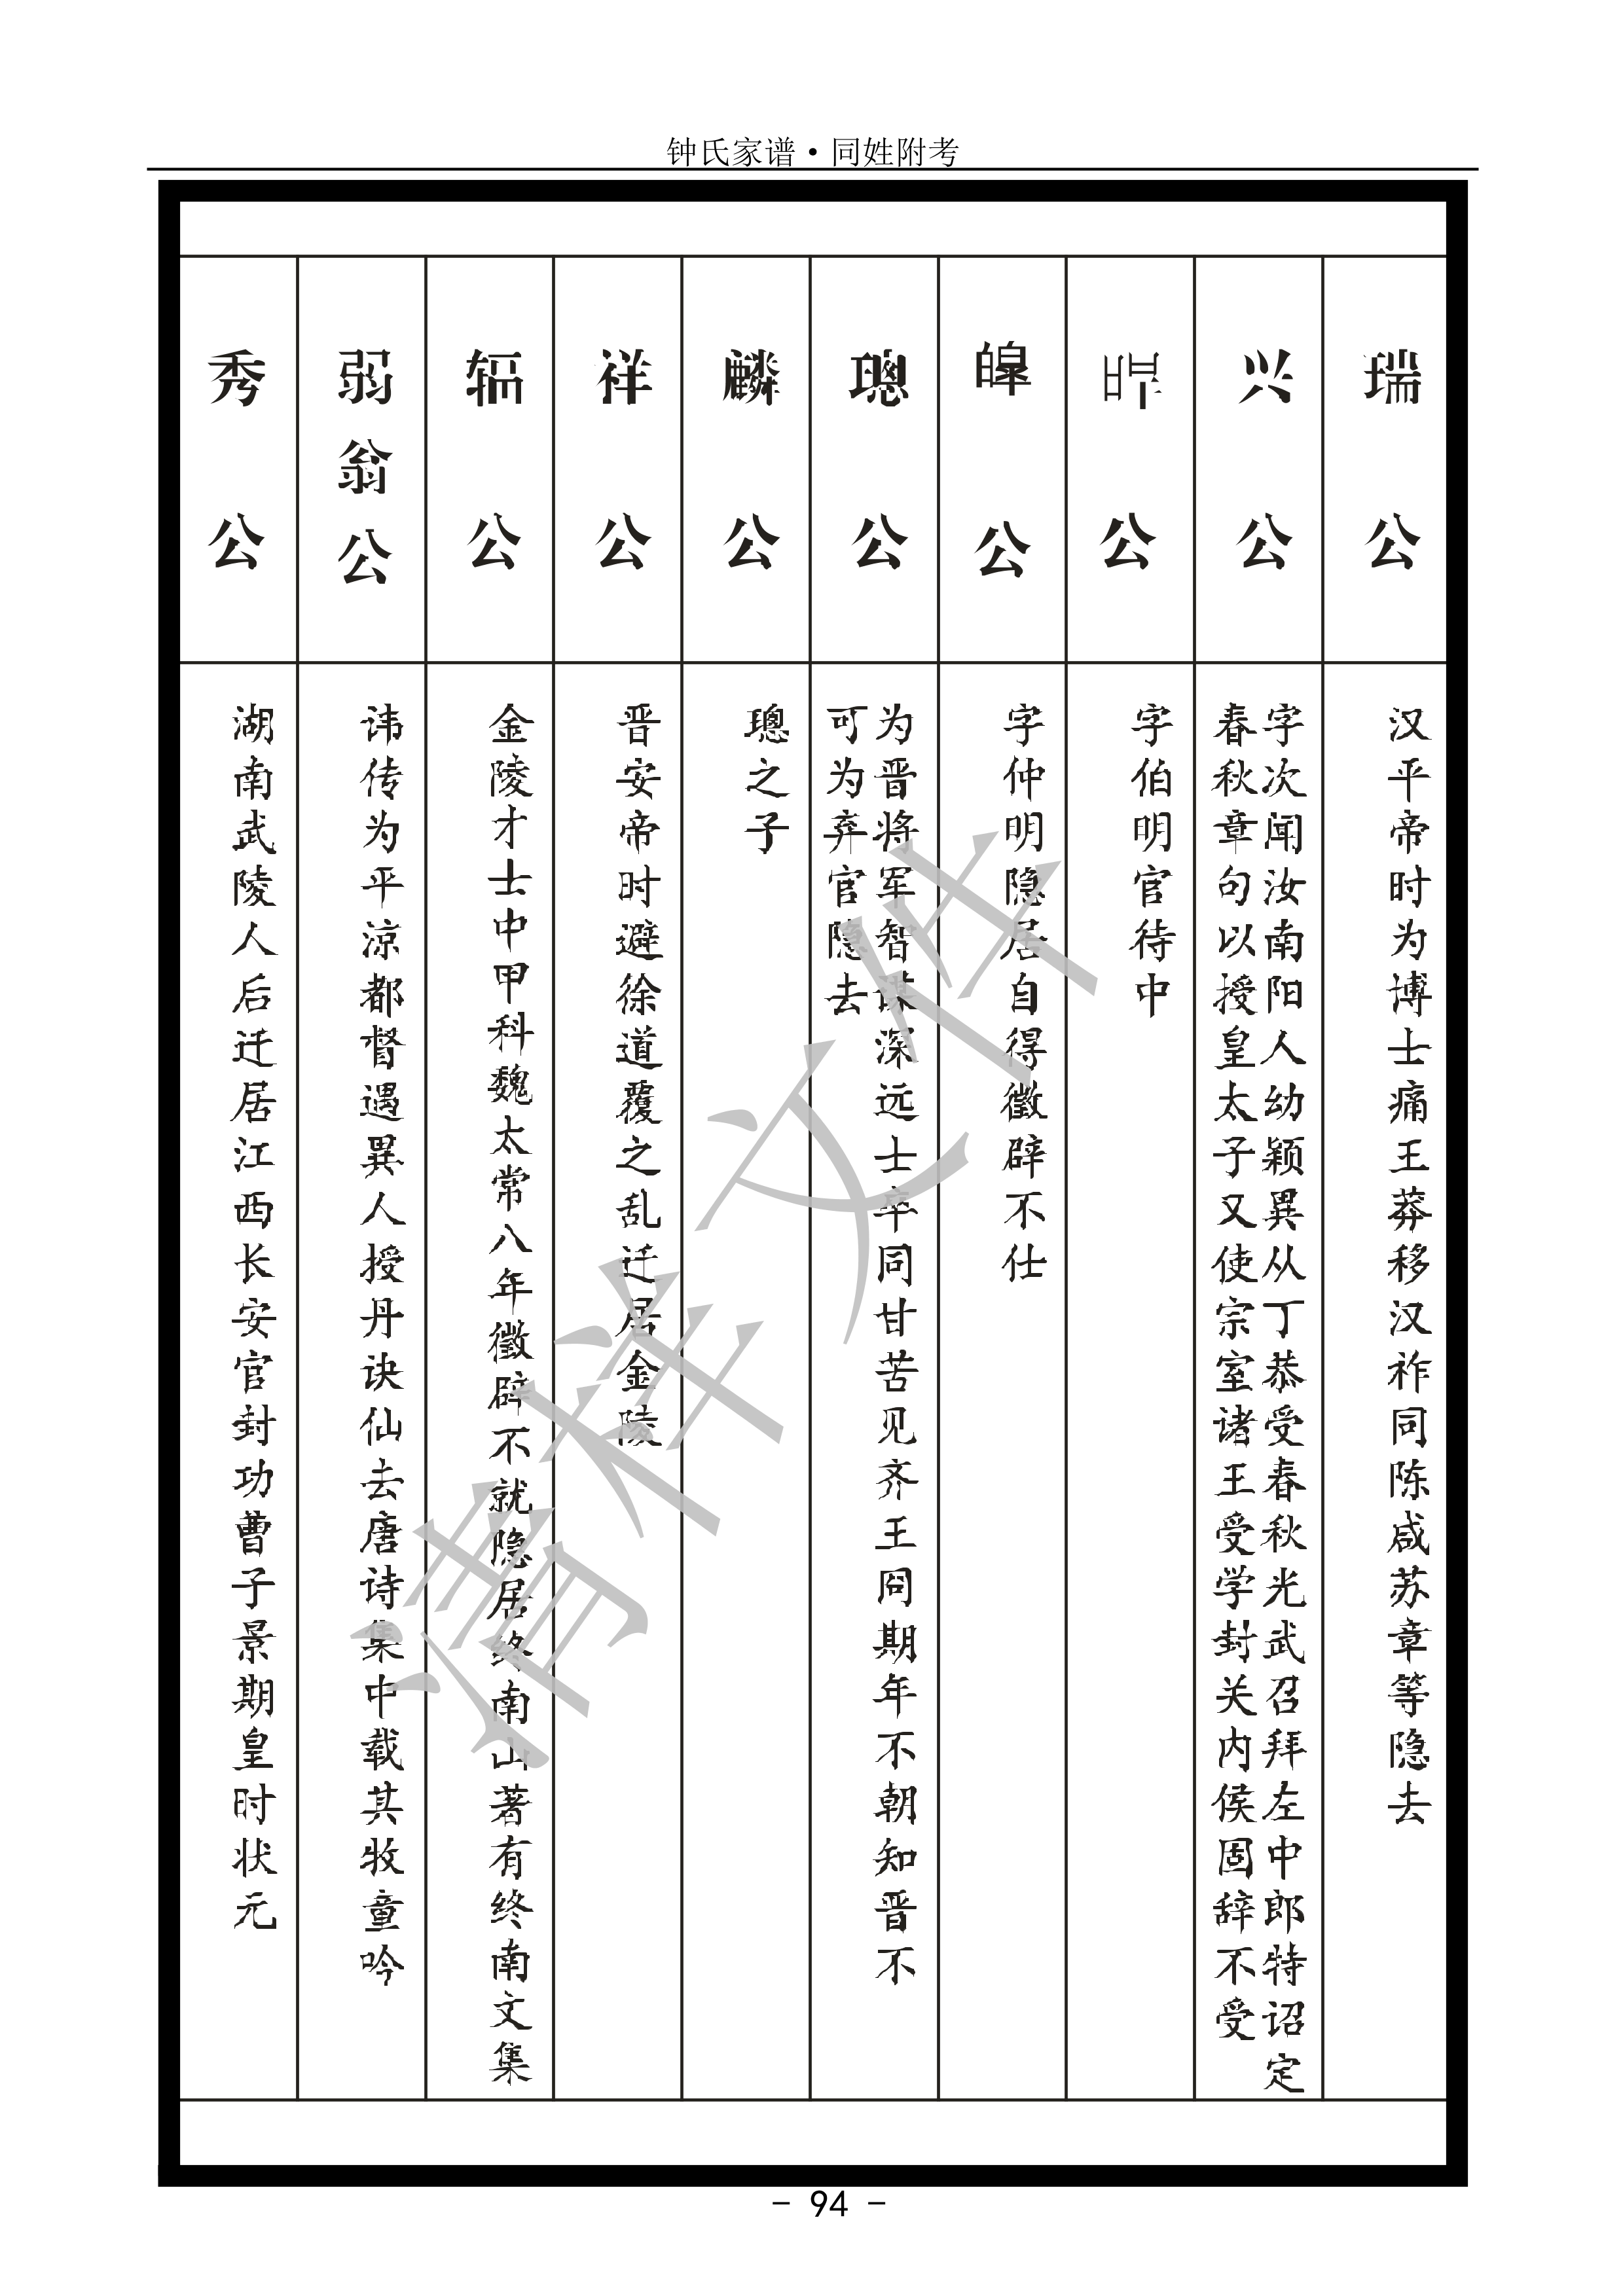 钟氏家谱·同姓附考
瑞公
汉平帝时为博士痛王莽移汉祚同陈咸苏章等隐去
兴公
字次闻汝南阳人幼颖異从丁恭受春秋光武召拜左中郎特诏定
春秋章句以授皇太子又使宗室诸王受学封关内侯固辞不受
公
字伯明官待中
皞公
字仲明隐居自得徵辟不仕
璁公
为晋将军智谋深远士卒同甘苦见齐王冏期年不朝知晋不
可为弃官隐去
麟公
璁之子
祥公
晋安帝时避徐道覆之乱迁居金陵
辐公
金陵才士中甲科魏太常八年徵辟不就隐居终南山著有终南文集
弱翁公
讳传为平凉都督遇異人授丹诀仙去唐诗集中载其牧童吟
秀公
湖南武陵人后迁居江西长安官封功曹子景期皇时状元
清样文件
- 94 -